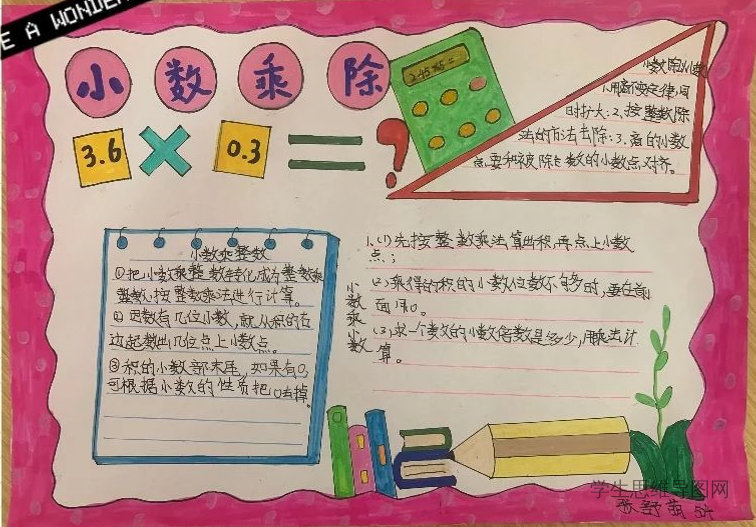 E A WONDER
小 数 乘 除
3.6 × 0.3 = ?
2.45×5=
小数除小数
1.用商不变定律,同
时扩大:2、按整数除
法的方法去除:3.商的小数
点要和被除数的小数点对齐。
小数乘整数
①把小数乘整数转化成为整数乘
整数,按整数乘法进行计算。
②因数有几位小数,就从积的右
边起数出几位点上小数点。
③积的小数部末尾,如果有0,
可根据小数的性质把0去掉。
小数乘小数
1、(1)先按整数乘法算出积,再点上小数
点;
(2)乘得的积的小数位数不够时,要在前
面用0。
(3)求一个数的小数倍数是多少,用乘法计
算。
学生思维导图网